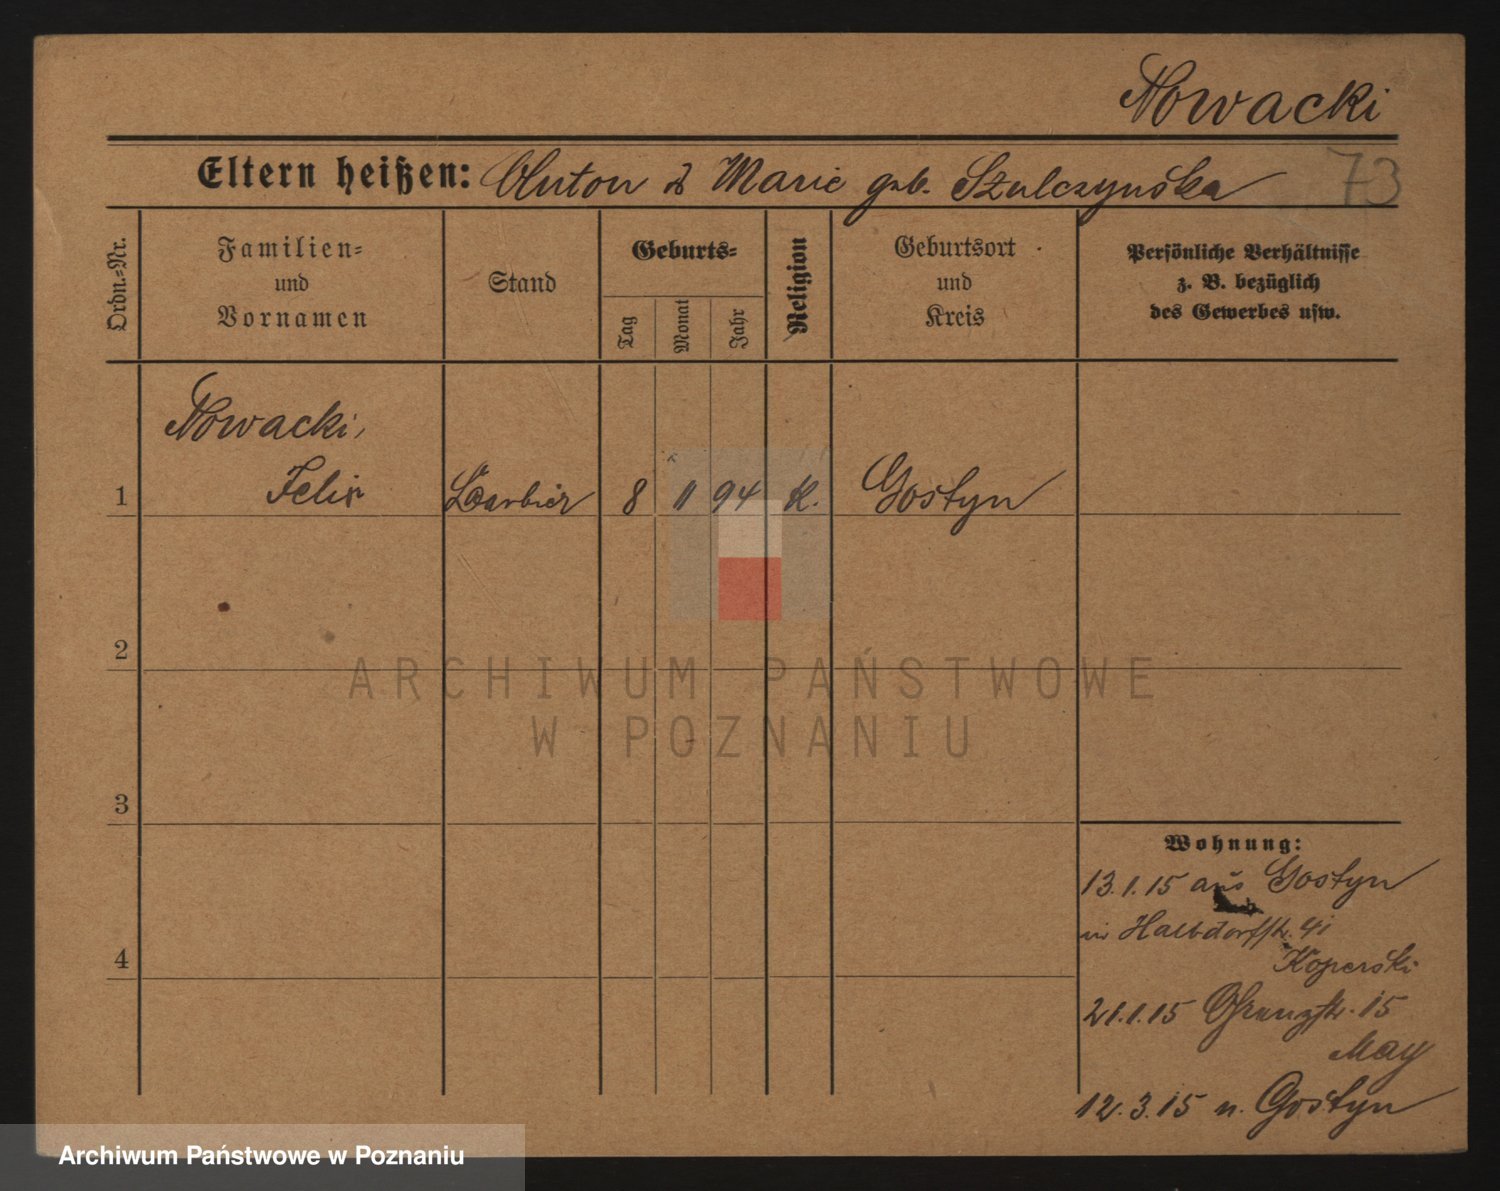 Nowacki
Eltern heißen: Anton & Marie geb. Szulczynska
73
Ordn.=Nr.
Familien= und Vornamen
Stand
Geburts=
Tag
Monat
Jahr
Religion
Geburtsort und Kreis
Persönliche Verhältnisse
z. B. bezüglich
des Gewerbes usw.
Nowacki,
1 Felix Barbier 8 11 94 K. Gostyn
2
ARCHIWUM PAŃSTWOWE
W POZNANIU
3
Wohnung:
13.1.15 aus Gostyn
in Halbdorfstr. 41
4
Koperski
21.1.15 Grenzstr. 15
May
12.3.15 n. Gostyn
Archiwum Państwowe w Poznaniu